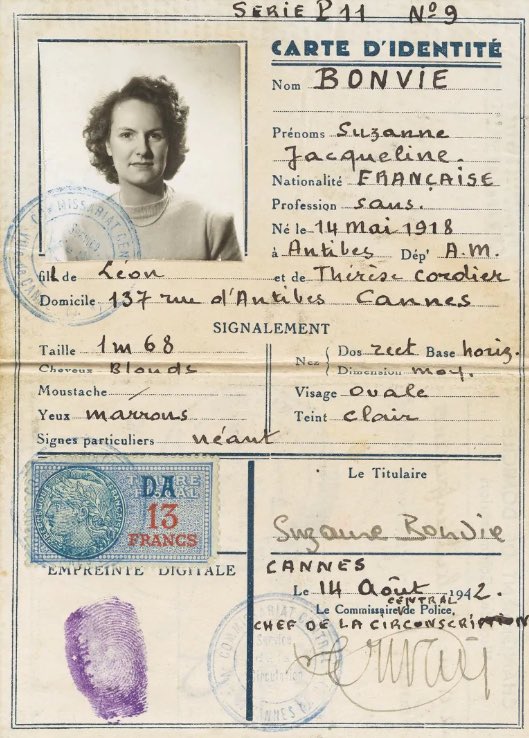 SERIE P11 Nº 9
CARTE D'IDENTITÉ
Nom BONVIE
Prénoms Suzanne
Jacqueline.
Nationalité FRANÇAISE
Profession sans.
Né le 14 Mai 1918
à Antibes Dép' A.M.
fill de Léon et de Thérèse Cordier
Domicile 137 rue d'Antibes Cannes
SIGNALEMENT
Taille 1m68
Cheveux Blonds
Moustache /
Yeux marrons
Signes particuliers néant
Nez { Dos rect Base horiz.
Dimension moy.
Visage ovale
Teint clair
DA
13
FRANCS
Le Titulaire
Suzanne Bonvie
EMPREINTE DIGITALE
CANNES
Le 14 Août 1942.
Le Commissaire CENTRAL de Police,
CHEF DE LA CIRCONSCRIPTION